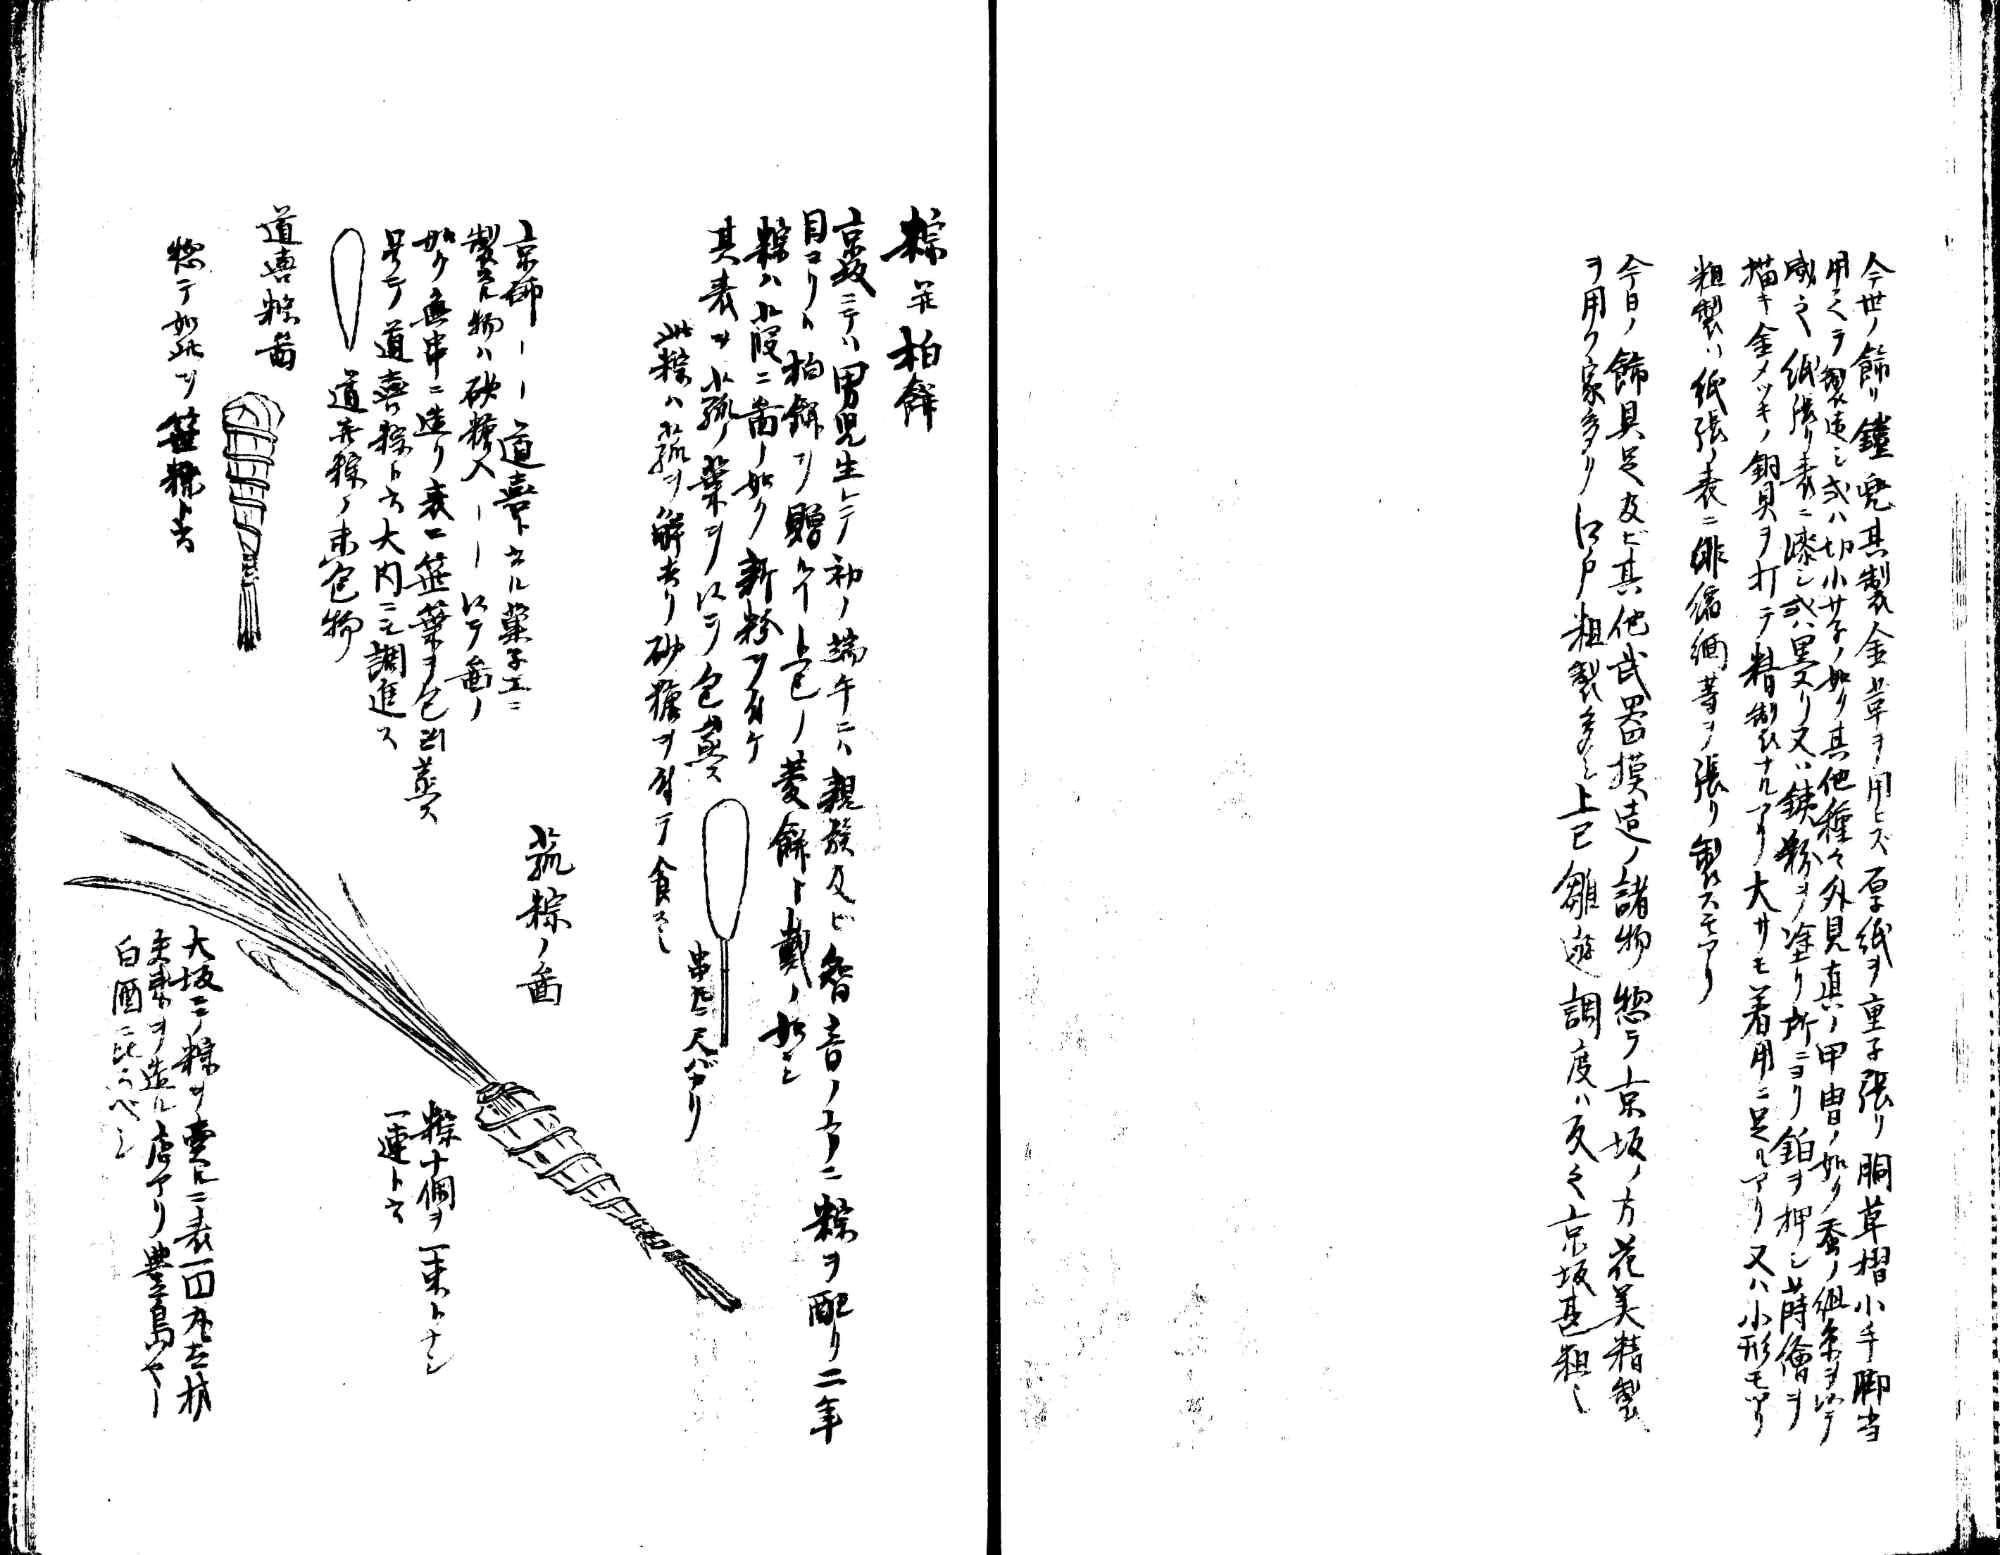 今世ノ飾リ鎧兜其製金革ヲ用ヒズ厚紙ヲ重子張リ胴草摺小手脚当
惣テ製造シ或ハ切小サ子ノ如ク其他種々外見真ノ甲冑ノ如ク蚕ノ組糸ヲ以テ
威之紙張リ表ニ漆シ或ハ黒ヌリ又ハ銕粉ヲ塗リ所ニヨリ鉑ヲ押シ蒔繪ヲ
描キ金メツキノ銅具ヲ打テ精製ナルアリ大サモ着用ニ足ルアリ又ハ小形モアリ
粗製ハ紙張ノ表ニ緋縮緬等ヲ張リ製スモアリ
今日ノ飾具足及ビ其他武器摸造ノ諸物惣テ京坂ノ方花美精製
ヲ用フ家多リ江戸粗製多シ上巳雛遊調度ハ反之京坂甚粗シ
粽並柏餅
京坂ニテハ男児生レテ初ノ端午ニハ親族及ビ智音ノ方ニ粽ヲ配リ二年
目ヨリハ柏餅ヲ贈ルコト上巳ノ菱餅ト戴ノ如シ
粽ハ下ニ図ノ如ク新粉ヲ付ケ
其表ヲ菰ノ葉ヲ以テ包ミ蒸ス
此粽ハ菰ヲ解去リ砂糖ヲ付テ食スシ
串 尺バカリ
京師ーー道喜ト云ル菓子工ニ
製スル物ハ砂糖入ーー以テ図ノ
如ク無串ニ造リ表ニ笹葉ヲ包ミ蒸ス
号テ道喜粽ト云大内ニモ調進ス
道喜粽ノ未包物
道喜粽図
惣テ如此ヲ笹粽ト云
菰粽ノ図
粽十個ヲ一束トナシ
一連ト云
大坂ニテ粽ヲ賣ルニ表一四
ヲ造ル店アリ豊島ヤノ
白酒ニ比スベシ